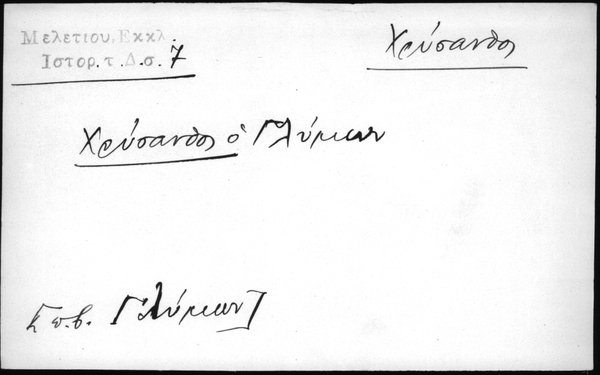 Μελετίου, Εκκλ.
Ἱστορ. τ. Δ. σ. 7
Χρύσανθος
Χρύσανθος ὁ Γλύμων
[π.β. Γλύμων]